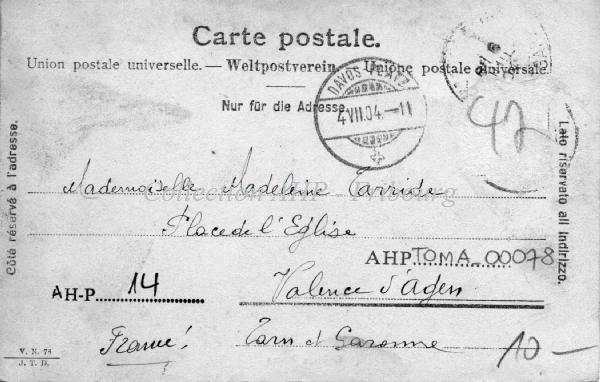 Carte postale.
Union postale universelle. — Weltpostverein. — Unione postale universale.
Nur für die Adresse.
DAVOS-PLATZ
4.VII.04.-11
42
Côté réservé à l'adresse.
Lato riservato all indirizzo.
Mademoiselle Madeleine Tarride
Collection AHP - Fribourg
Place de l'Eglise
AHP TOMA_00078
AH-P 14
Valence d'Agen
France! Tarn et Garonne
10 —
V. N. 78
J. T. D.